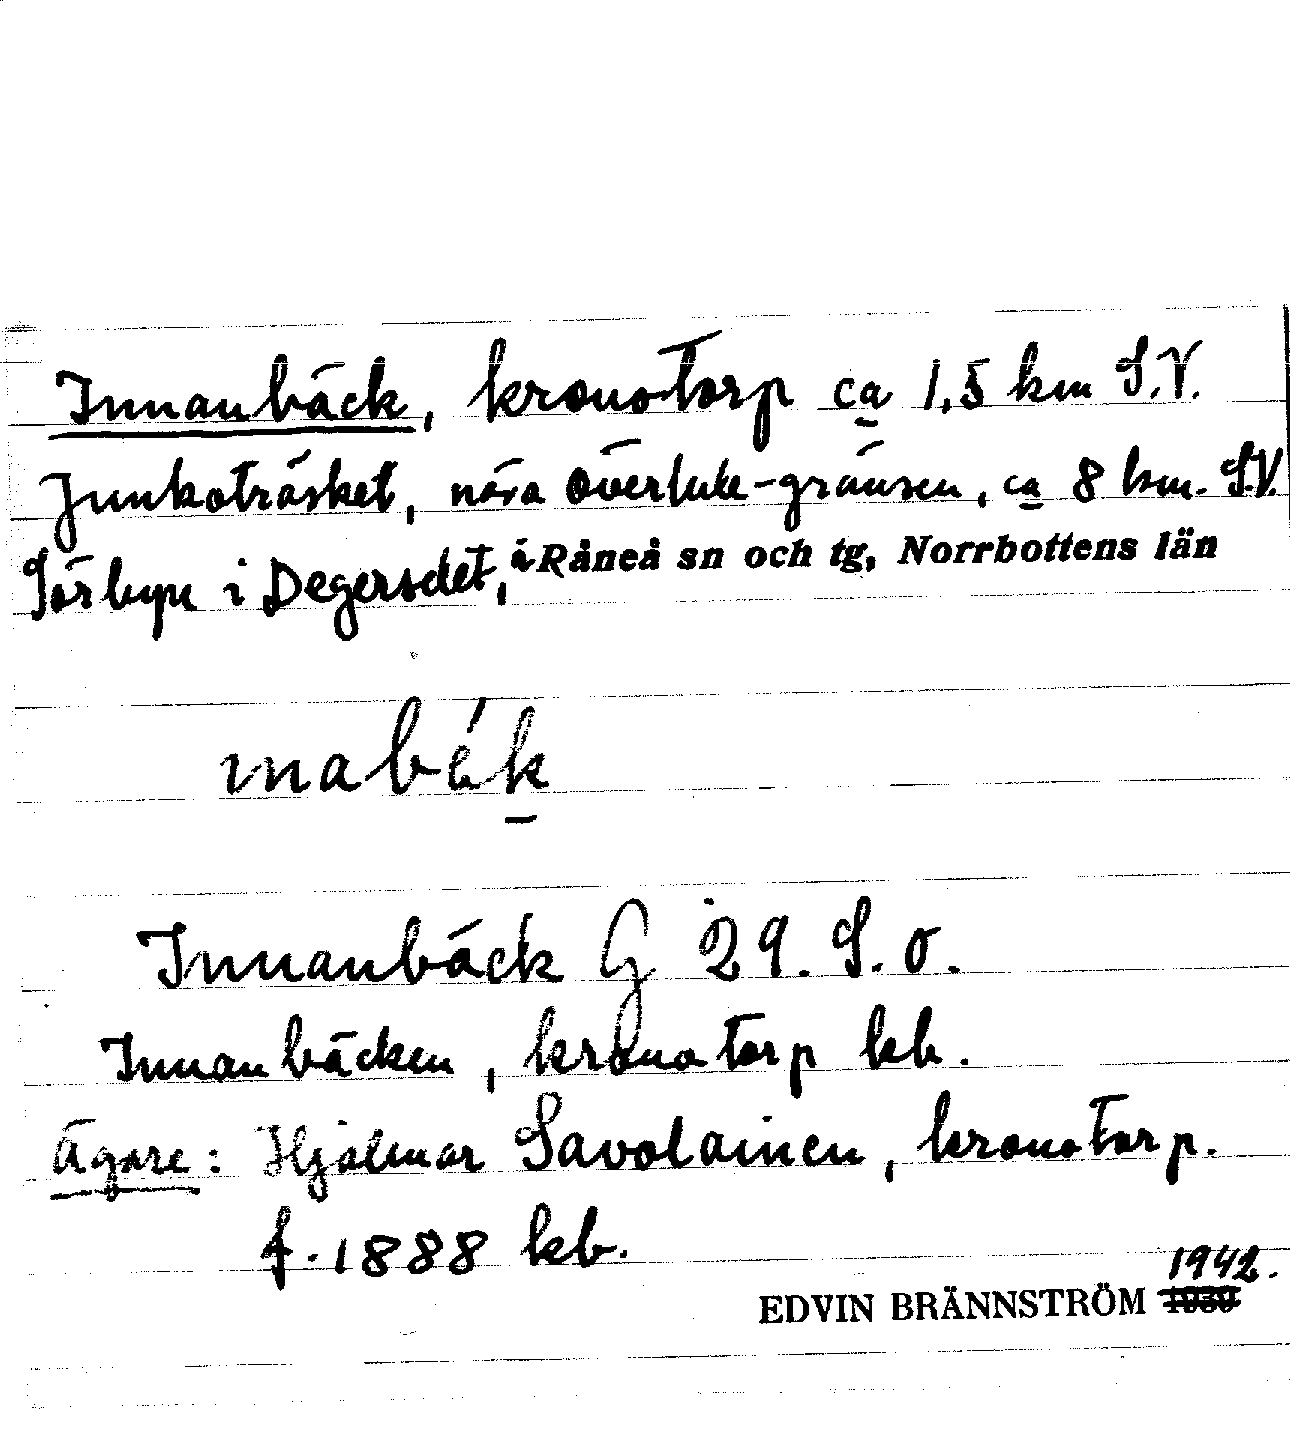 Innanbäck, kronotorp ca 1,5 km S.V.
Junkoträsket, nära Överlule-gränsen, ca 8 km. S.V.
Sörbyn i Degerselet, i Råneå sn och tg, Norrbottens län
ınabäk
Innanbäck G 29. S. o.
Innanbäcken, kronotorp kb.
Ägare: Hjalmar Savolainen, kronotorp.
f. 1888 kb.
1942.
EDVIN BRÄNNSTRÖM 1939